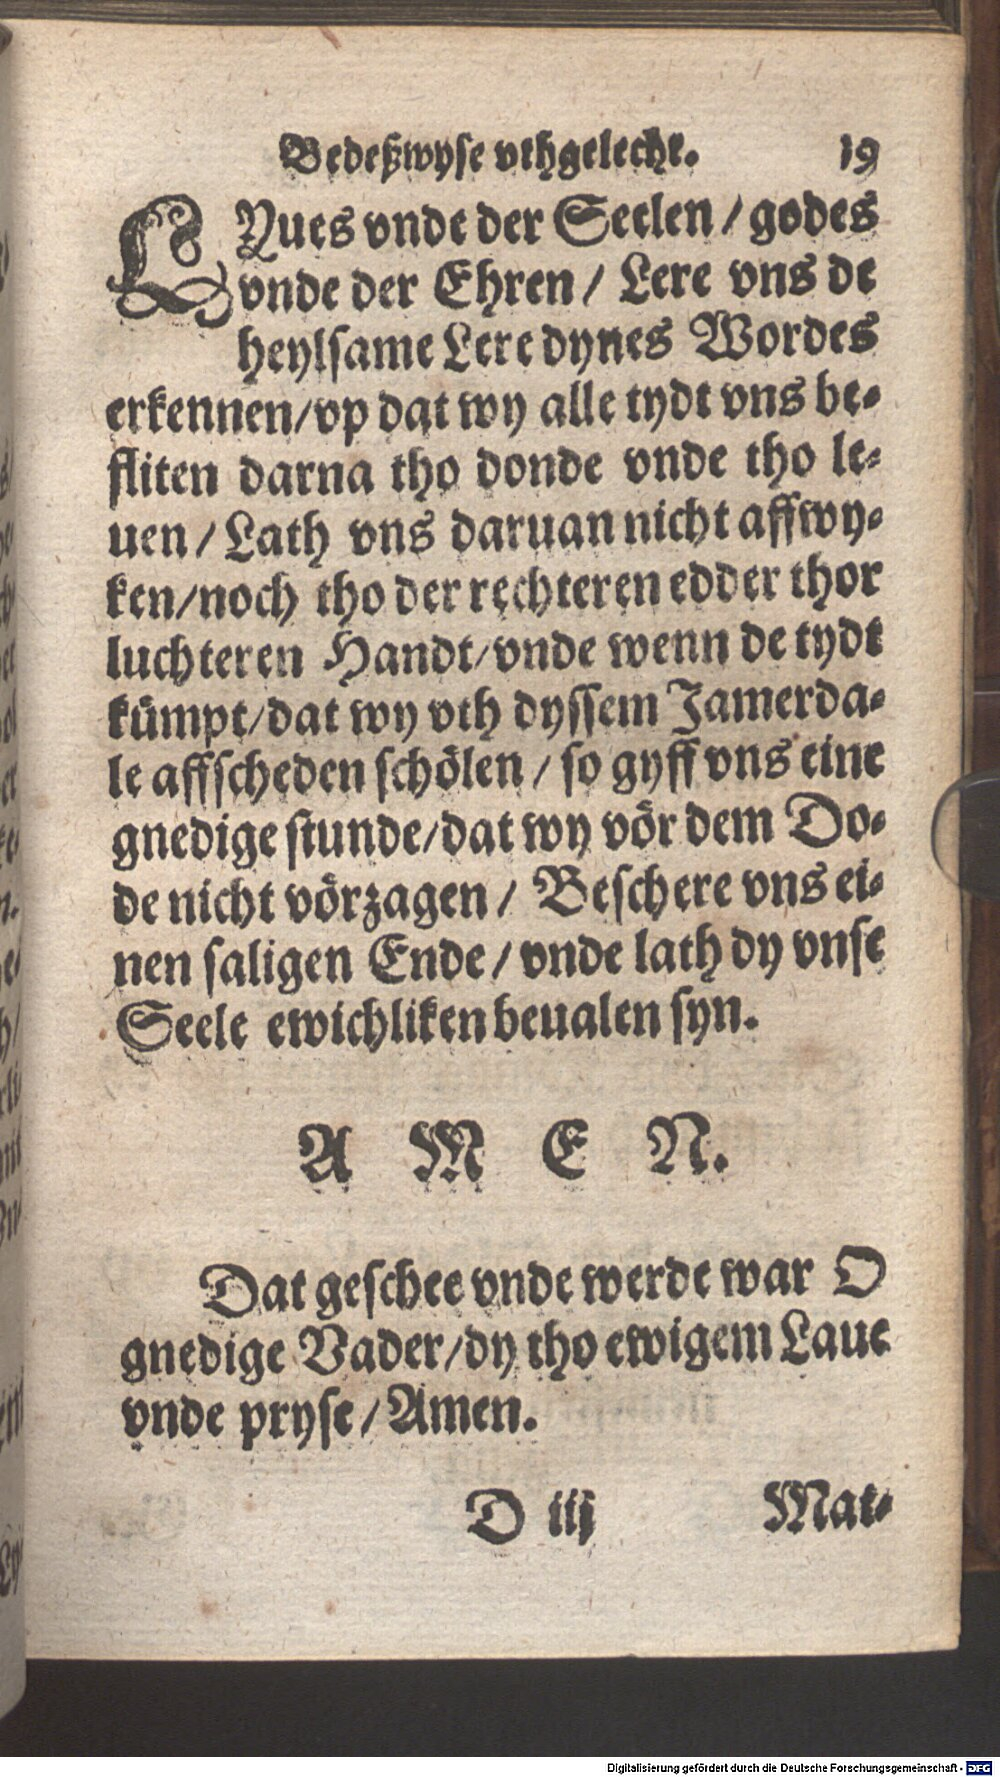 Bedeßwyse vthgelecht. 19
LYues vnde der Seelen / godes
vnde der Ehren / Lere vns de
heylsame Lere dynes Wordes
erkennen/vp dat wy alle tydt vns be-
fliten darna tho donde vnde tho le-
uen / Lath vns daruan nicht affwy-
ken/noch tho der rechteren edder thor
luchteren Handt/vnde wenn de tydt
kümpt/dat wy vth dyssem Jamerda-
le affscheden schölen / so gyff vns eine
gnedige stunde/dat wy vör dem Do-
de nicht vörzagen / Beschere vns ei-
nen saligen Ende / vnde lath dy vnse
Seele ewichliken beualen syn.
A M E N.
Dat geschee vnde werde war O
gnedige Vader/dy tho ewigem Laue
vnde pryse / Amen.
D iij Mat-
Digitalisierung gefördert durch die Deutsche Forschungsgemeinschaft - DFG